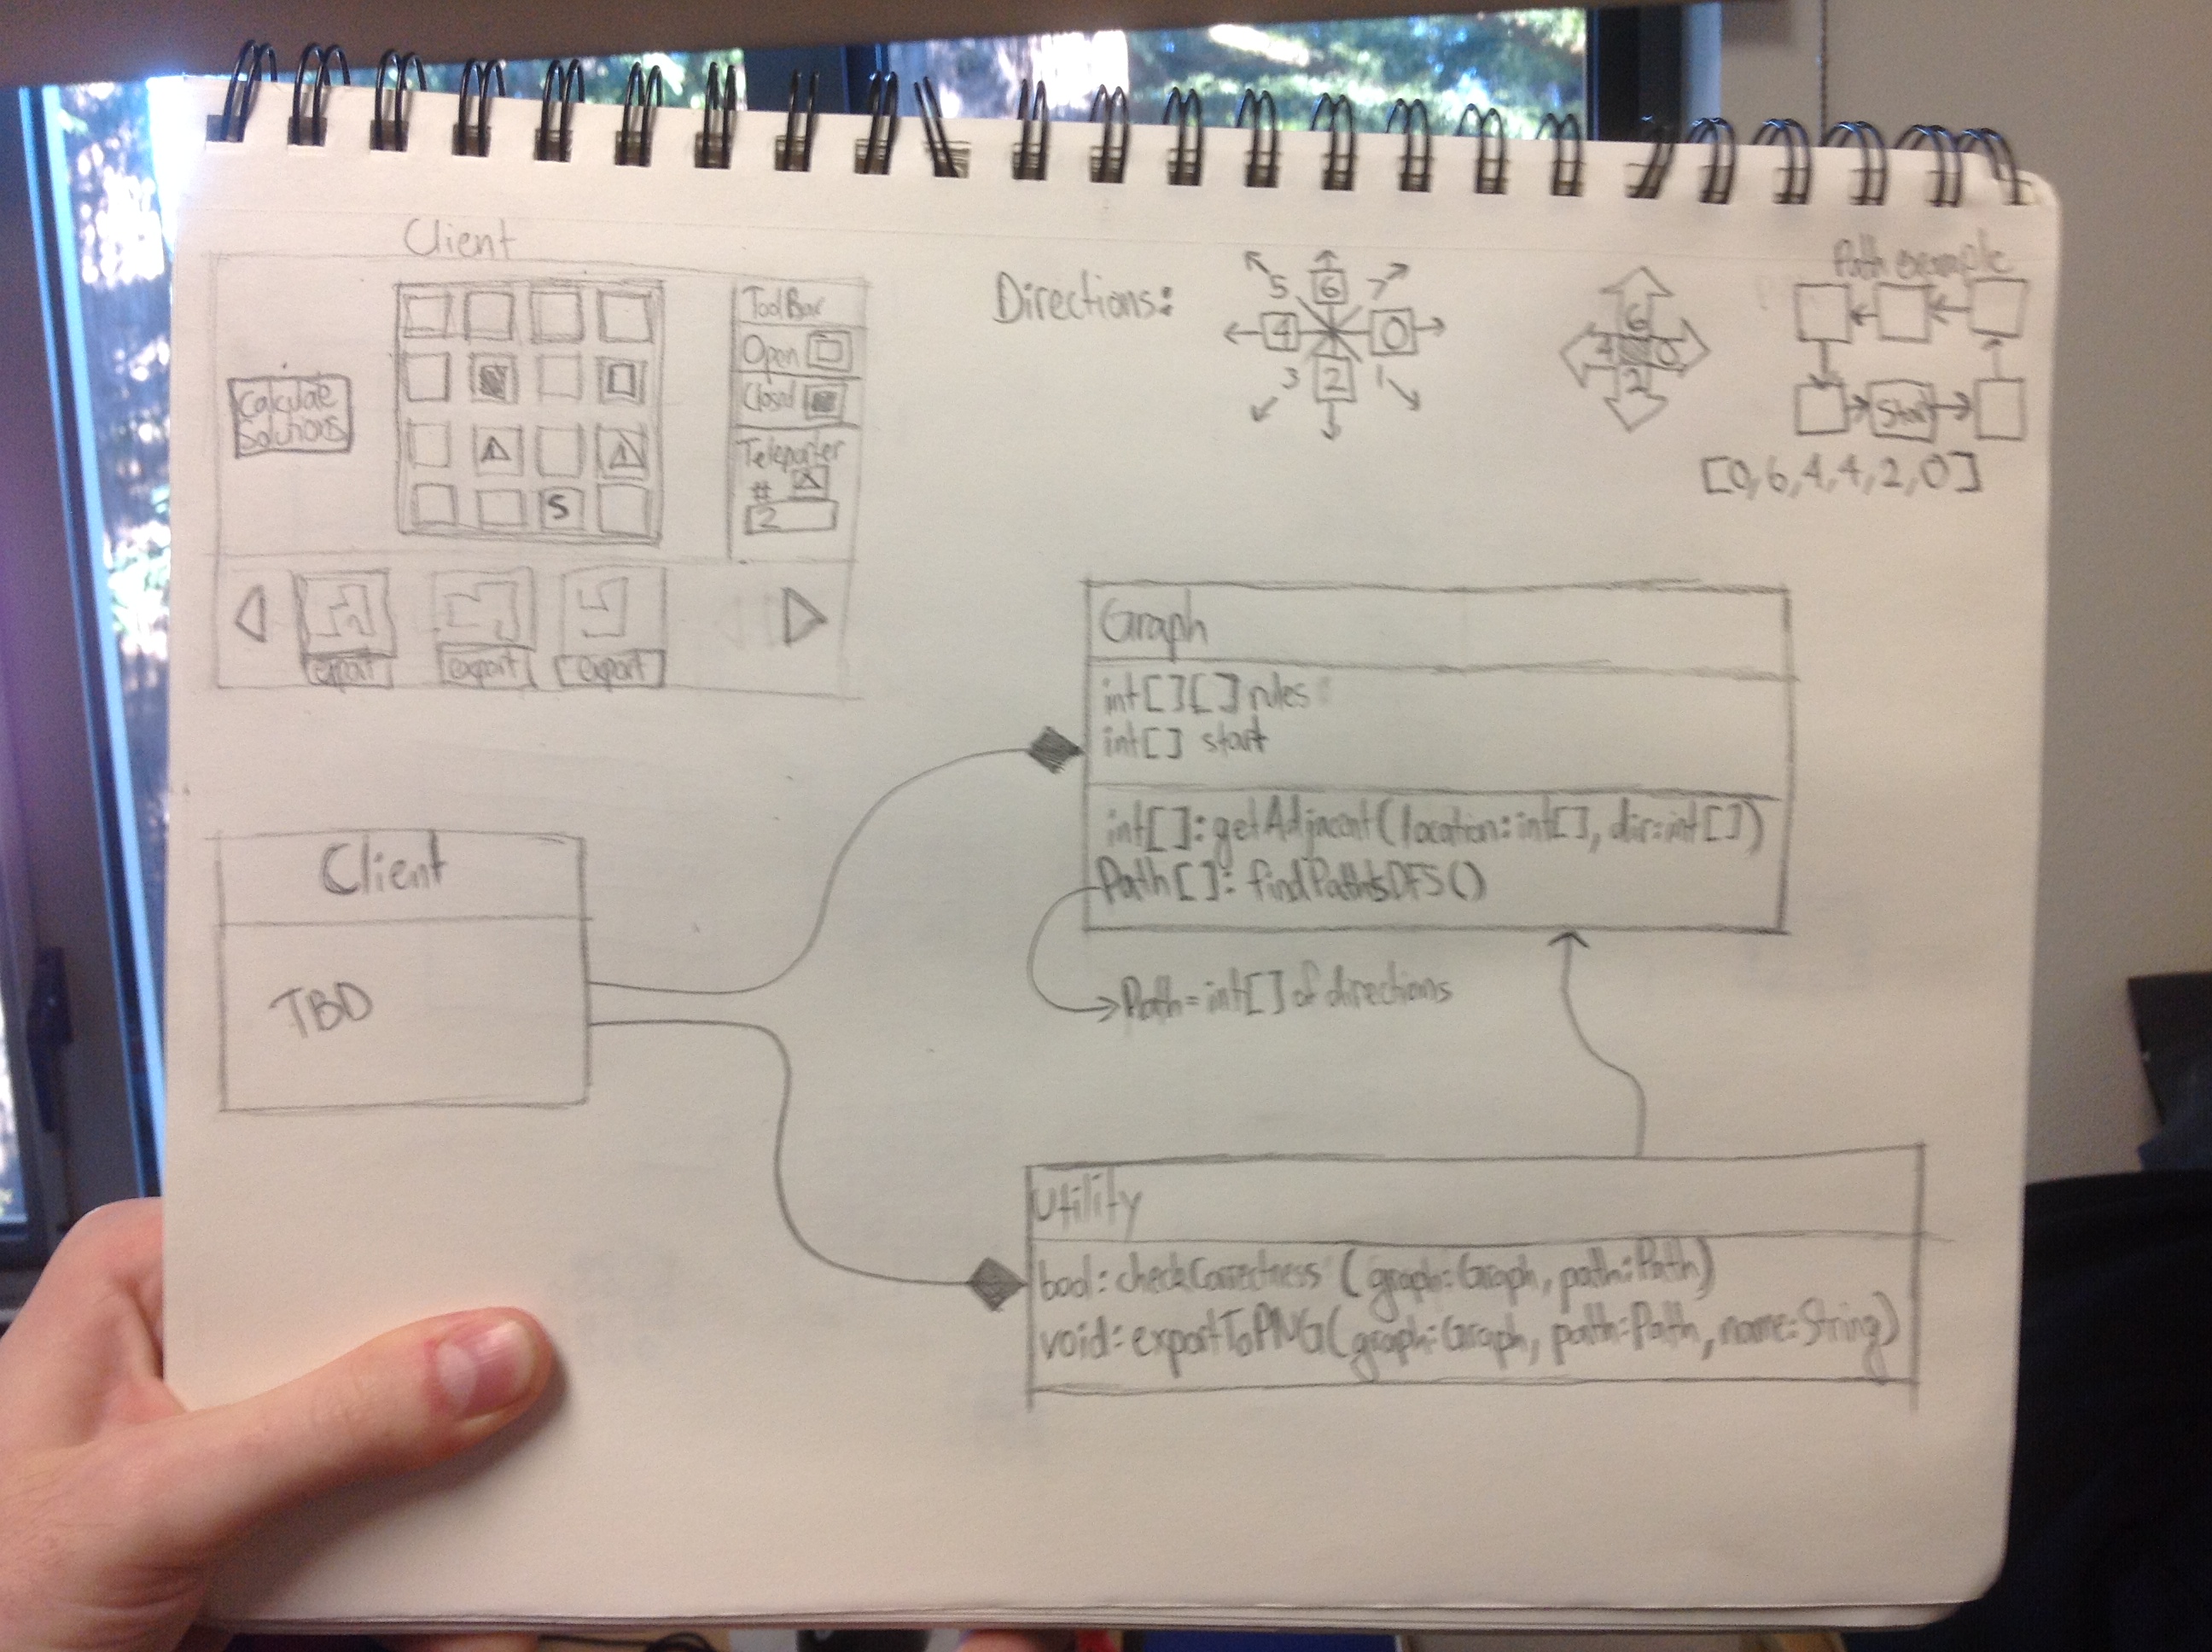 Client
Calculate
Solutions
S
ToolBar
Open
Closed
Teleporter
#
2
export
export
export
Directions:
5 6 7
4 0
3 2 1
6
4 0
2
Path example
Start
[0,6,4,4,2,0]
Graph
int[][] rules
int[] start
int[]: getAdjacent(location:int[], dir:int[])
Path[]: findPathsDFS()
Path = int[] of directions
Client
TBD
Utility
bool: checkCorrectness (graph:Graph, path:Path)
void: exportToPNG(graph:Graph, path:Path, name:String)